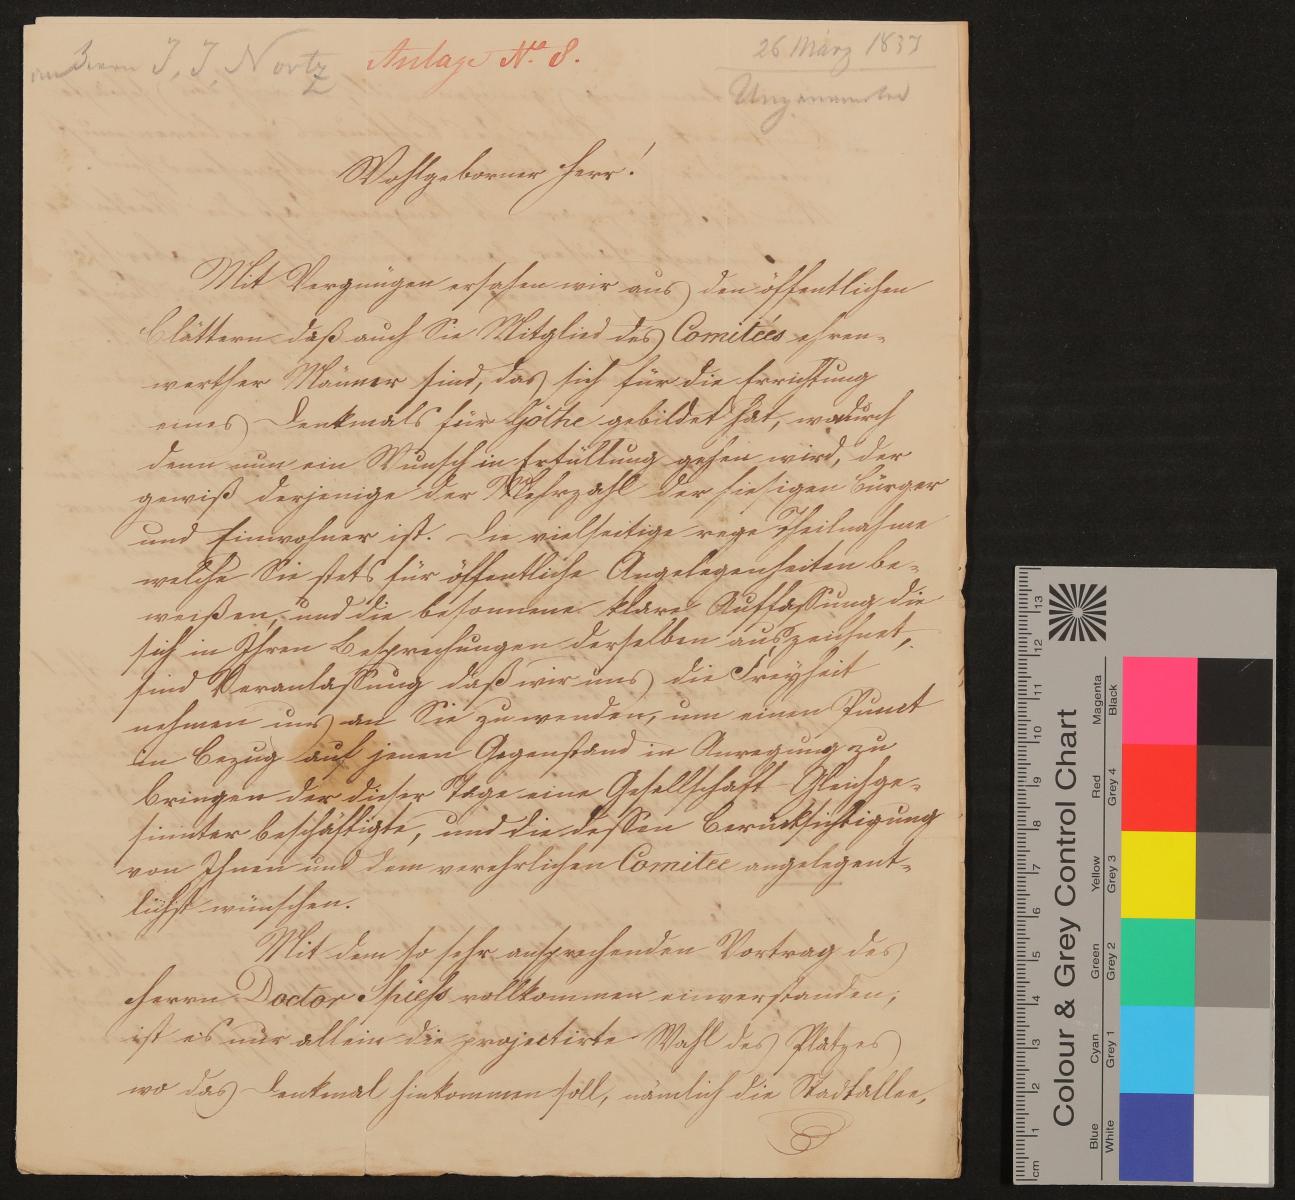 an Herrn J. J. Nortz
Anlage No 8.
26 März 1837
Ungenannter
Wohlgeborner Herr!
Mit Vergnügen ersahen wir aus den öffentlichen
Blättern daß auch Sie Mitglied des Comitées ehren-
werther Männer sind, das sich für die Errichtung
eines Denkmals für Göthe gebildet hat, wodurch
denn nun ein Wunsch in Erfüllung gehen wird, der
gewiß derjenige der Mehrzahl der hiesigen Bürger
und Einwohner ist. Die vielseitige rege Theilnahme
welche Sie stets für öffentliche Angelegenheiten be-
weißen, und die besonnene klare Auffassung die
sich in Ihren Besprechungen derselben auszeichnet,
sind Veranlassung daß wir uns die Freyheit
nehmen uns an Sie zu wenden, um einen Punct
in Bezug auf jenen Gegenstand in Anregung zu
bringen der dieser Tage eine Gesellschaft Gleichge-
sinnter beschäftigte, und die dessen Berücksichtigung
von Ihnen und dem verehrlichen Comitee angelegent-
lichst wünschen.
Mit dem so sehr ansprechenden Vortrag des
Herrn Doctor Spiess vollkommen einverstanden,
ist es nur allein die projectirte Wahl des Platzes
wo das Denkmal hinkommen soll, nämlich die Stadtallee,
Colour & Grey Control Chart
Blue Cyan Green Yellow Red Magenta
White Grey 1 Grey 2 Grey 3 Grey 4 Black
cm 1 2 3 4 5 6 7 8 9 10 11 12 13